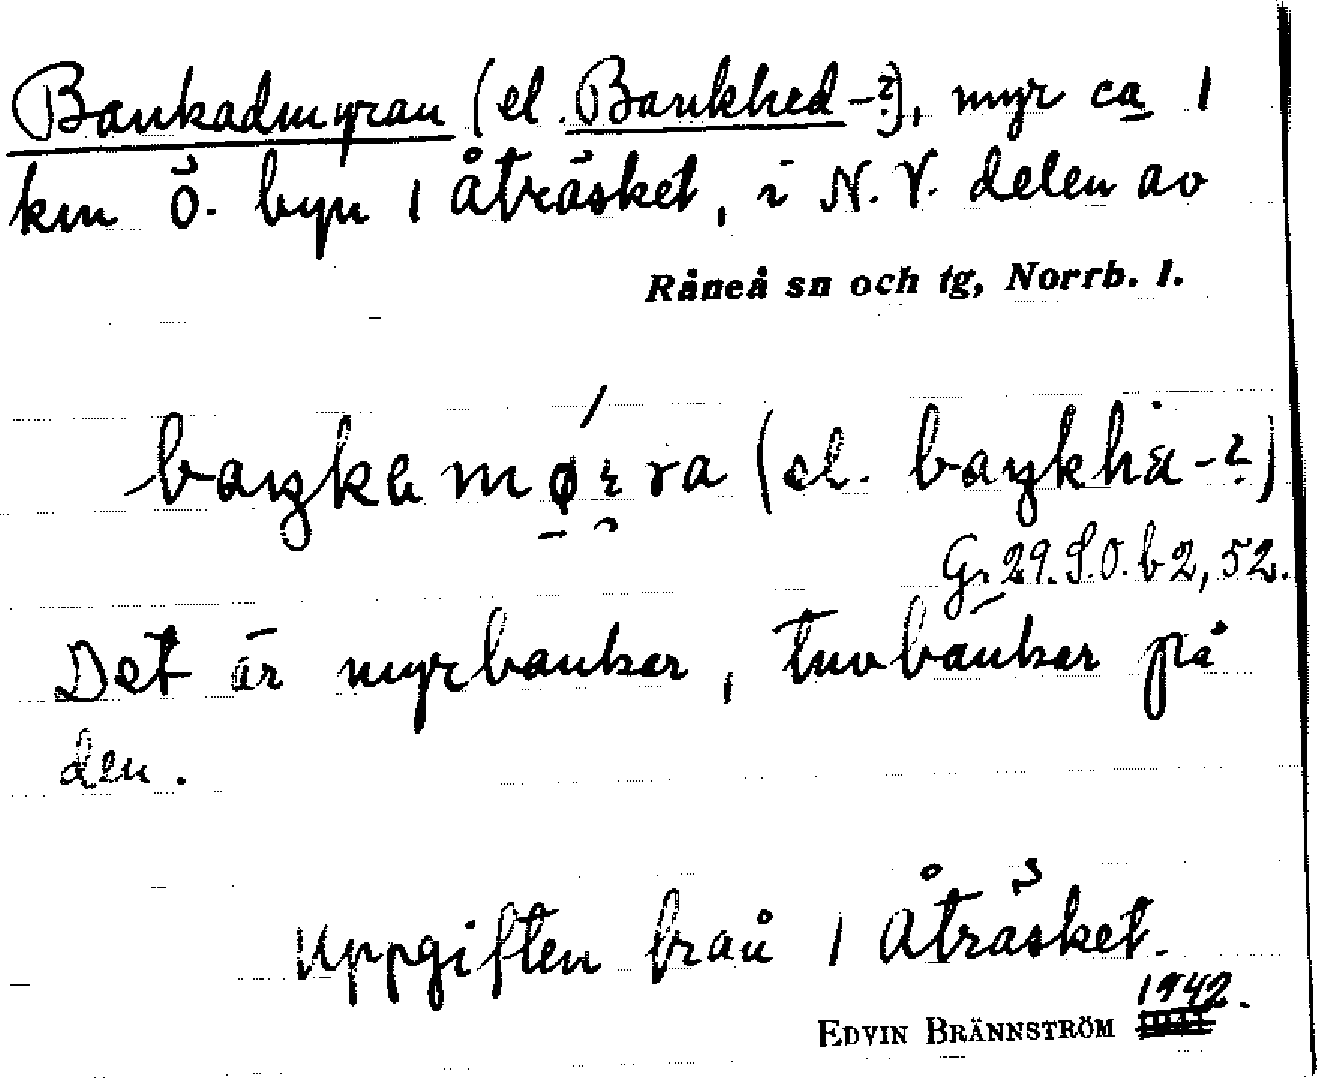 Bankadmyran (el. Bankhed-?), myr ca 1
km Ö. byn 1 Åträsket, i N.V. delen av
Råneå sn och tg, Norrb. l.
(el.
Gr 29. S.O. b 2, 52.
Det är myrbankar, tuvbankar på
den.
Uppgiften från 1 Åträsket.
1942.
EDVIN BRÄNNSTRÖM